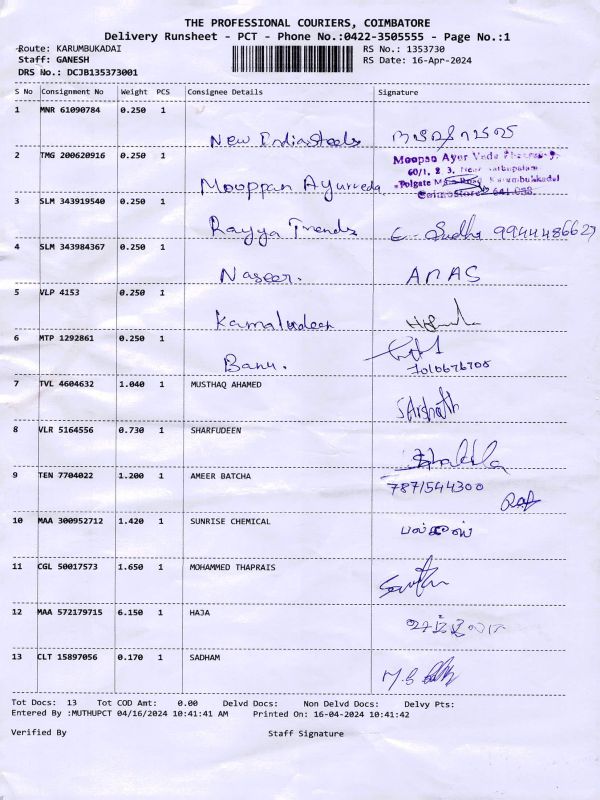 THE PROFESSIONAL COURIERS, COIMBATORE
Delivery Runsheet - PCT - Phone No.:0422-3505555 - Page No.:1
Route: KARUMBUKADAI RS No.: 1353730
Staff: GANESH RS Date: 16-Apr-2024
DRS No.: DCJB135373001
S No Consignment No Weight PCS Consignee Details Signature
1 MNR 61090784 0.250 1
New Indiasteels
2 TMG 200620916 0.250 1
Mooppan Ayurveda
Moopan Ayur Veda
60/1, 2 3, Near
Karumbukkadai
641 008
3 SLM 343919540 0.250 1
Rayya Trendz 9944486627
4 SLM 343984367 0.250 1
Naseer. ANAS
5 VLP 4153 0.250 1
Kamaludeen
6 MTP 1292861 0.250 1
Banu.
7 TVL 4604632 1.040 1 MUSTHAQ AHAMED
8 VLR 5164556 0.730 1 SHARFUDEEN
9 TEN 7704022 1.200 1 AMEER BATCHA 7871544300
10 MAA 300952712 1.420 1 SUNRISE CHEMICAL
11 CGL 50017573 1.650 1 MOHAMMED THAPRAIS
12 MAA 572179715 6.150 1 HAJA
13 CLT 15897056 0.170 1 SADHAM
Tot Docs: 13 Tot COD Amt: 0.00 Delvd Docs: Non Delvd Docs: Delvy Pts:
Entered By :MUTHUPCT 04/16/2024 10:41:41 AM Printed On: 16-04-2024 10:41:42
Verified By Staff Signature